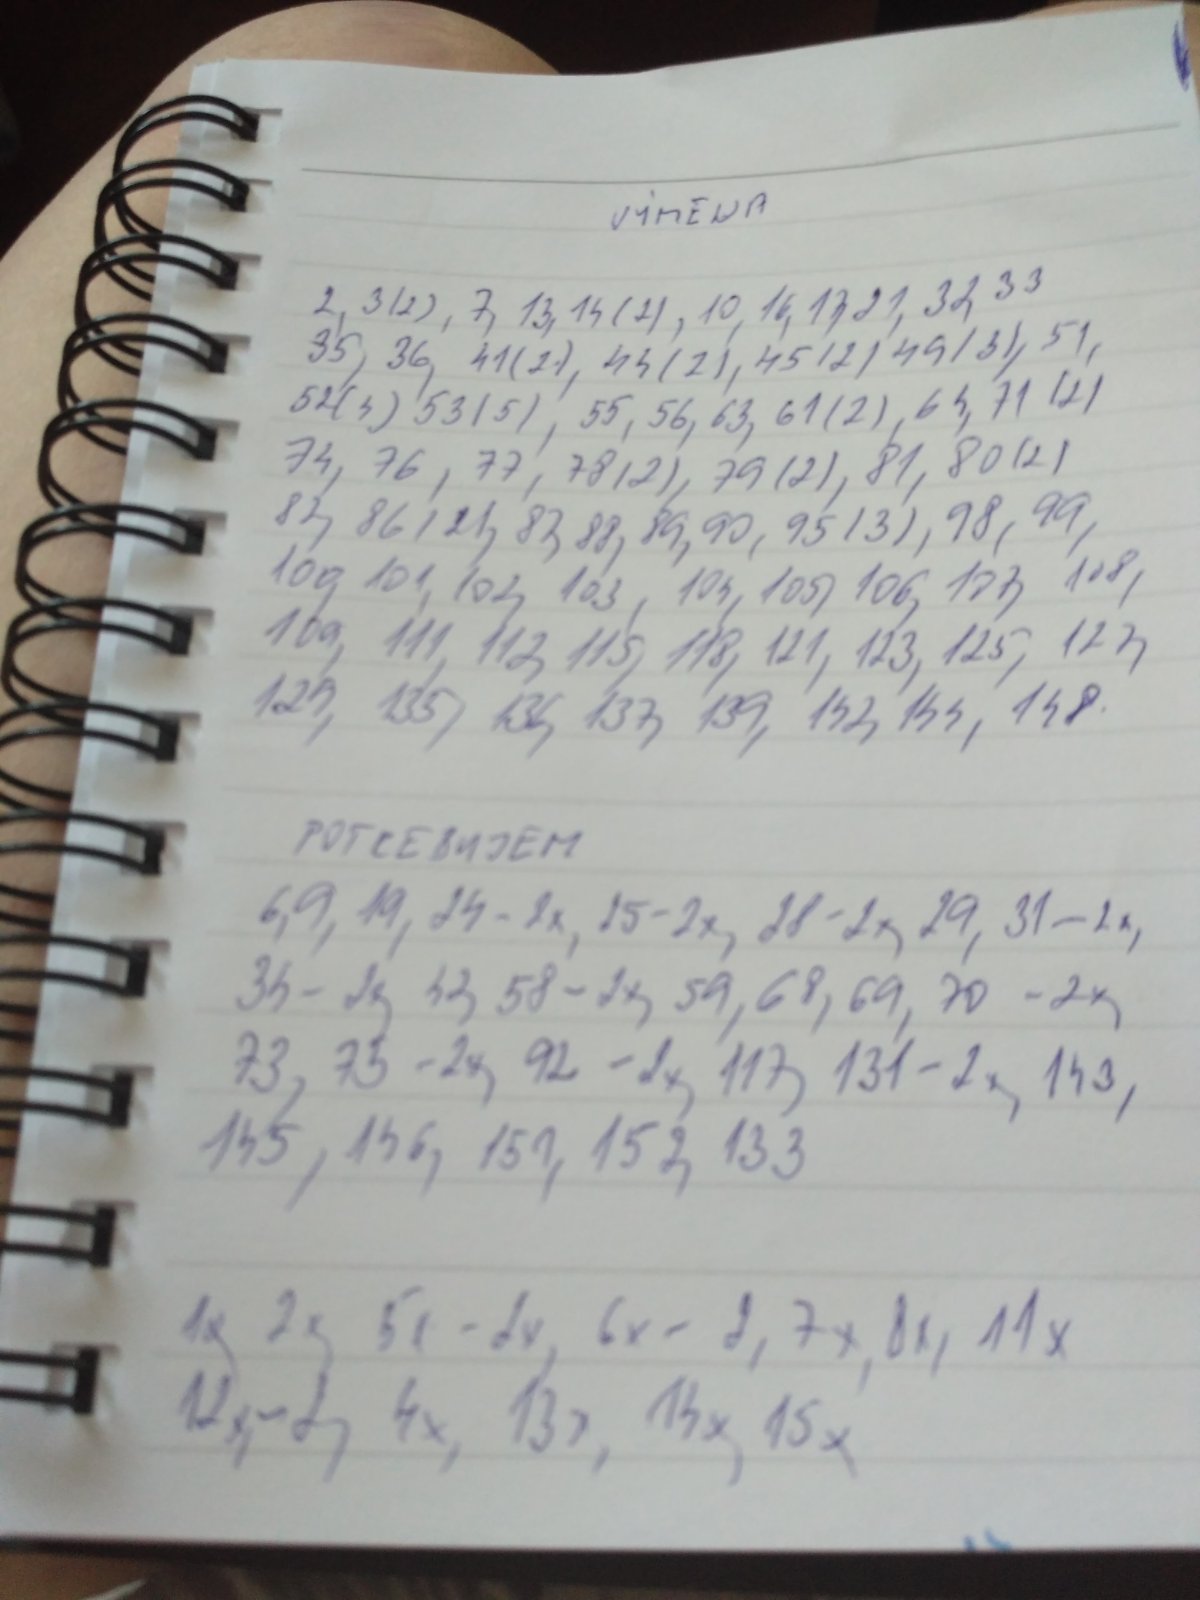 VÝMENA
2, 3(2), 7, 13, 14(2), 10, 16, 17, 21, 32, 33
35, 36, 41(2), 44(2), 45(2) 49(3), 51,
52(4) 53(5), 55, 56, 63, 61(2), 64, 71(2)
74, 76, 77, 78(2), 79(2), 81, 80(2)
82, 86(2), 87, 88, 89, 90, 95(3), 98, 99,
100, 101, 102, 103, 104, 105, 106, 107, 108,
109, 111, 112, 115, 118, 121, 123, 125, 127,
129, 135, 136, 137, 139, 142, 144, 148.
POTREBUJEM
6, 9, 19, 24-2x, 25-2x, 28-2x, 29, 31-2x,
34-2x, 42, 58-2x, 59, 68, 69, 70 -2x,
73, 75 -2x, 92 -2x, 117, 131-2x, 143,
145, 146, 151, 152, 133
1x, 2x, 5x -2x, 6x- 2, 7x, 8x, 11x
12x,-2, 4x, 13x, 14x, 15x